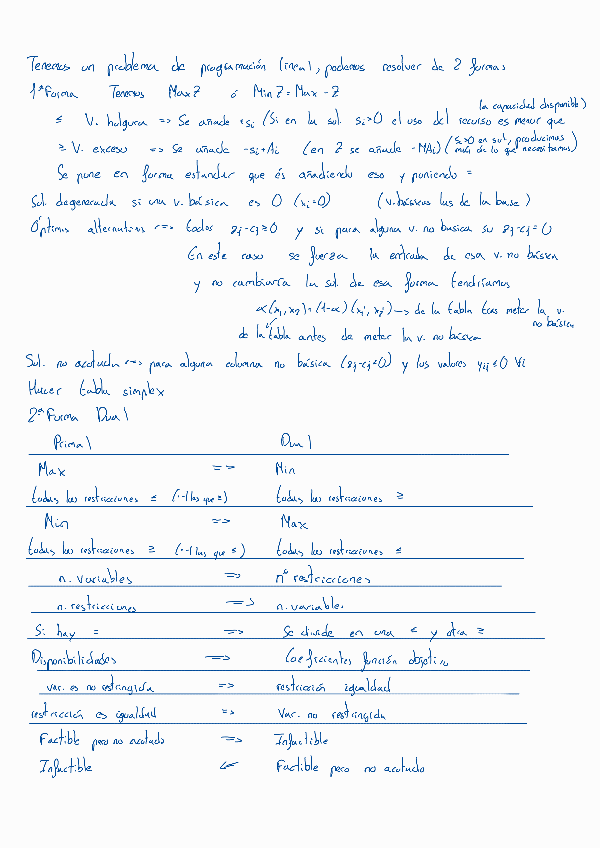 Tenemos un problema de programación lineal, podemos resolver de 2 formas
1ª Forma Tenemos Max Z ó Min Z = Max - Z
≤ V. holgura => Se añade +si (Si en la sol. si>0 el uso del recurso es menor que la capacidad disponible)
≥ V. exceso => Se añade -si+Ai (en Z se añade -MAi) (Si>0 en sol, producimos más de lo que necesitamos)
Se pone en forma estandar que és añadiendo eso y poniendo =
Sol. degenerada si una v. básica es 0 (xi=0) (v. básicas las de la base)
Óptimos alternativos <=> todos zj-cj≥0 y si para alguna v. no basica su zj-cj=0
En este caso se fuerza la entrada de esa v. no básica
y no cambiaría la sol. de esa forma tendríamos
α(x1,x2)+(1-α)(x1',x2') -> de la tabla tras meter la v. no básica
de la tabla antes de meter la v. no básica
Sol. no acotada <=> para alguna columna no básica (zj-cj≤0) y los valores yij≤0 ∀i
Hacer tabla simplex
2ª Forma Dual
Primal Dual
Max => Min
todas las restricciones ≤ (·-1 las que ≥) todas las restricciones ≥
Min => Max
todas las restricciones ≥ (·-1 las que ≤) todas las restricciones ≤
n. variables => nº restricciones
n. restricciones => n. variables
Si hay = => Se divide en una ≤ y otra ≥
Disponibilidades => Coeficientes función objetivo
var. es no restringida => restricción igualdad
restricción es igualdad => Var. no restringida
Factible pero no acotado => Infactible
Infactible <= Factible pero no acotado